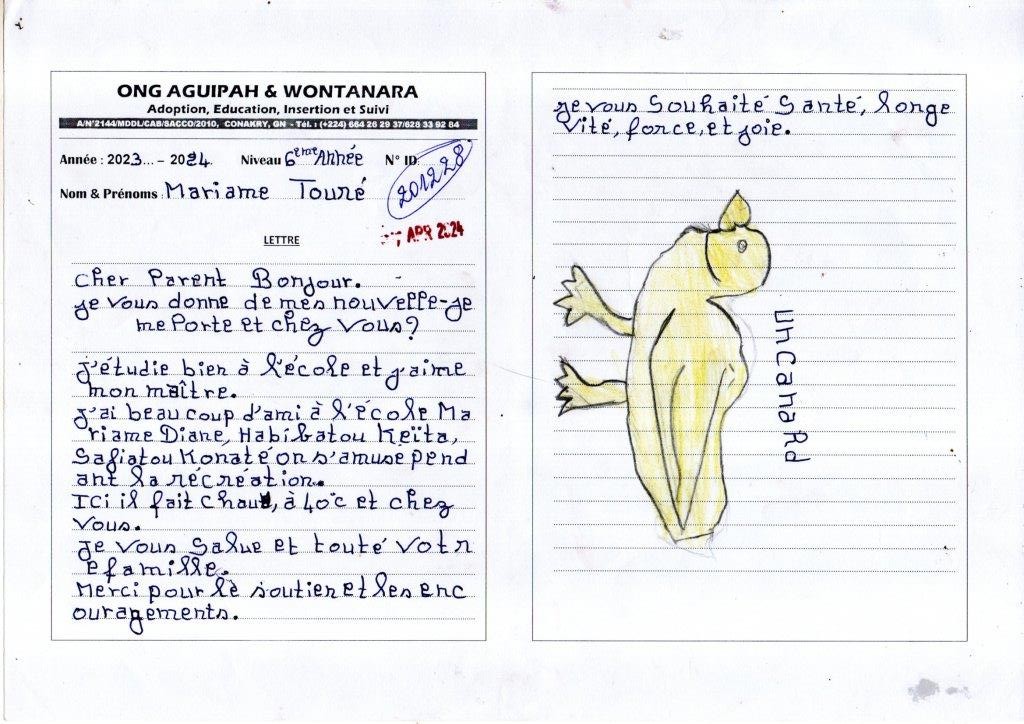 ONG AGUIPAH & WONTANARA
Adoption, Education, Insertion et Suivi
A/N°2144/MDDL/CAB/SACCO/2010, CONAKRY, GN - Tél. : (+224) 664 26 29 37/628 33 92 84
Année : 2023... - 2024. Niveau 6ème Année N° ID 201228
Nom & Prénoms : Mariame Touré
APR 2024
LETTRE
Cher Parent Bonjour.
je vous donne de mes nouvelle-je
me Porte et chez Vous?
j'étudie bien à l'école et j'aime
mon maître.
j'ai beaucoup d'ami à l'école Ma
riame Diane, Habibatou Keïta,
Safiatou Konaté on s'amuse pend
ant la récréation.
Ici il fait chaud, à 40°c et chez
Vous.
Je vous Salue et touté votr
e famille.
Merci pour lè soutien et les enc
ouragements.
je vous Souhaité Santé, longe
vité, force, et joie.
Un Canard